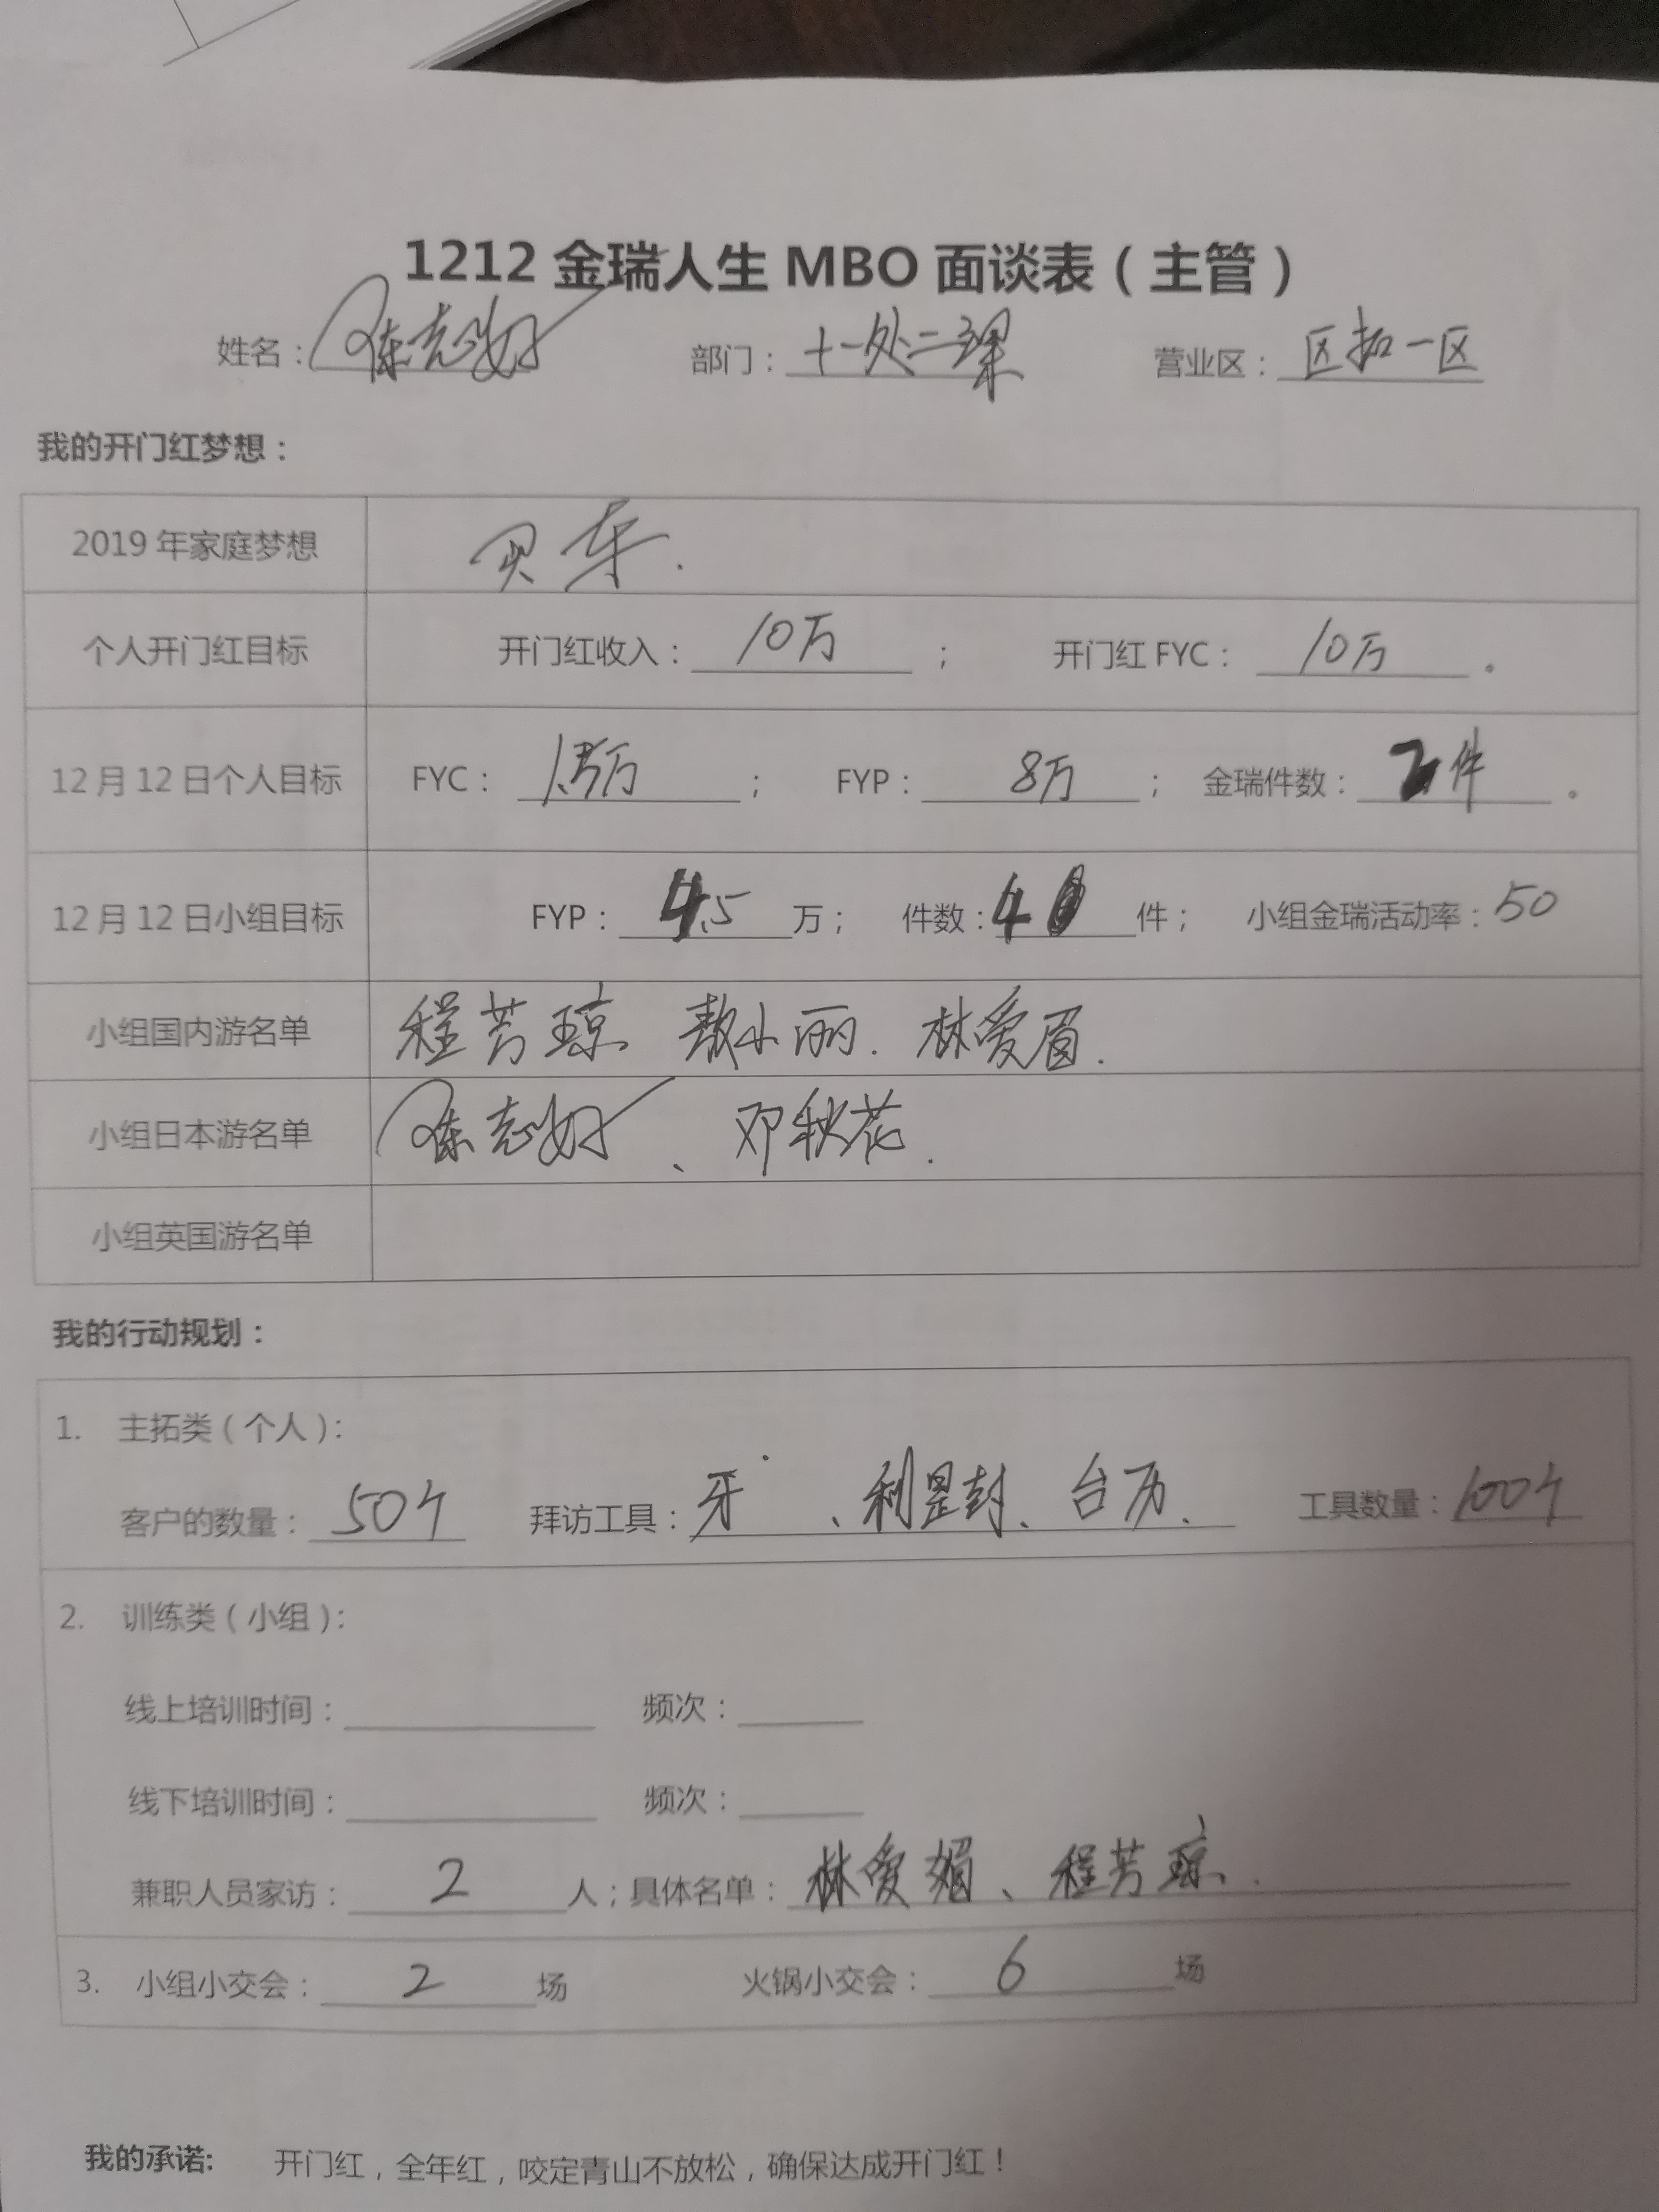 1212金瑞人生MBO面谈表（主管）
姓名：陈志好 部门：十一处二课 营业区：区拓一区
我的开门红梦想：
2019年家庭梦想 买车.
个人开门红目标 开门红收入：10万； 开门红FYC：10万。
12月12日个人目标 FYC：万； FYP：8万； 金瑞件数：2件。
12月12日小组目标 FYP：4.5万； 件数：4件； 小组金瑞活动率：50
小组国内游名单 程芳琼 敖小丽. 林爱眉.
小组日本游名单 陈志好、邓秋花.
小组英国游名单
我的行动规划：
1. 主拓类（个人）：
客户的数量：50个 拜访工具：牙、利是封、台历. 工具数量：100个
2. 训练类（小组）：
线上培训时间： 频次：
线下培训时间： 频次：
兼职人员家访：2人；具体名单：林爱媚、程芳琼.
3. 小组小交会：2场 火锅小交会：6场
我的承诺: 开门红，全年红，咬定青山不放松，确保达成开门红！